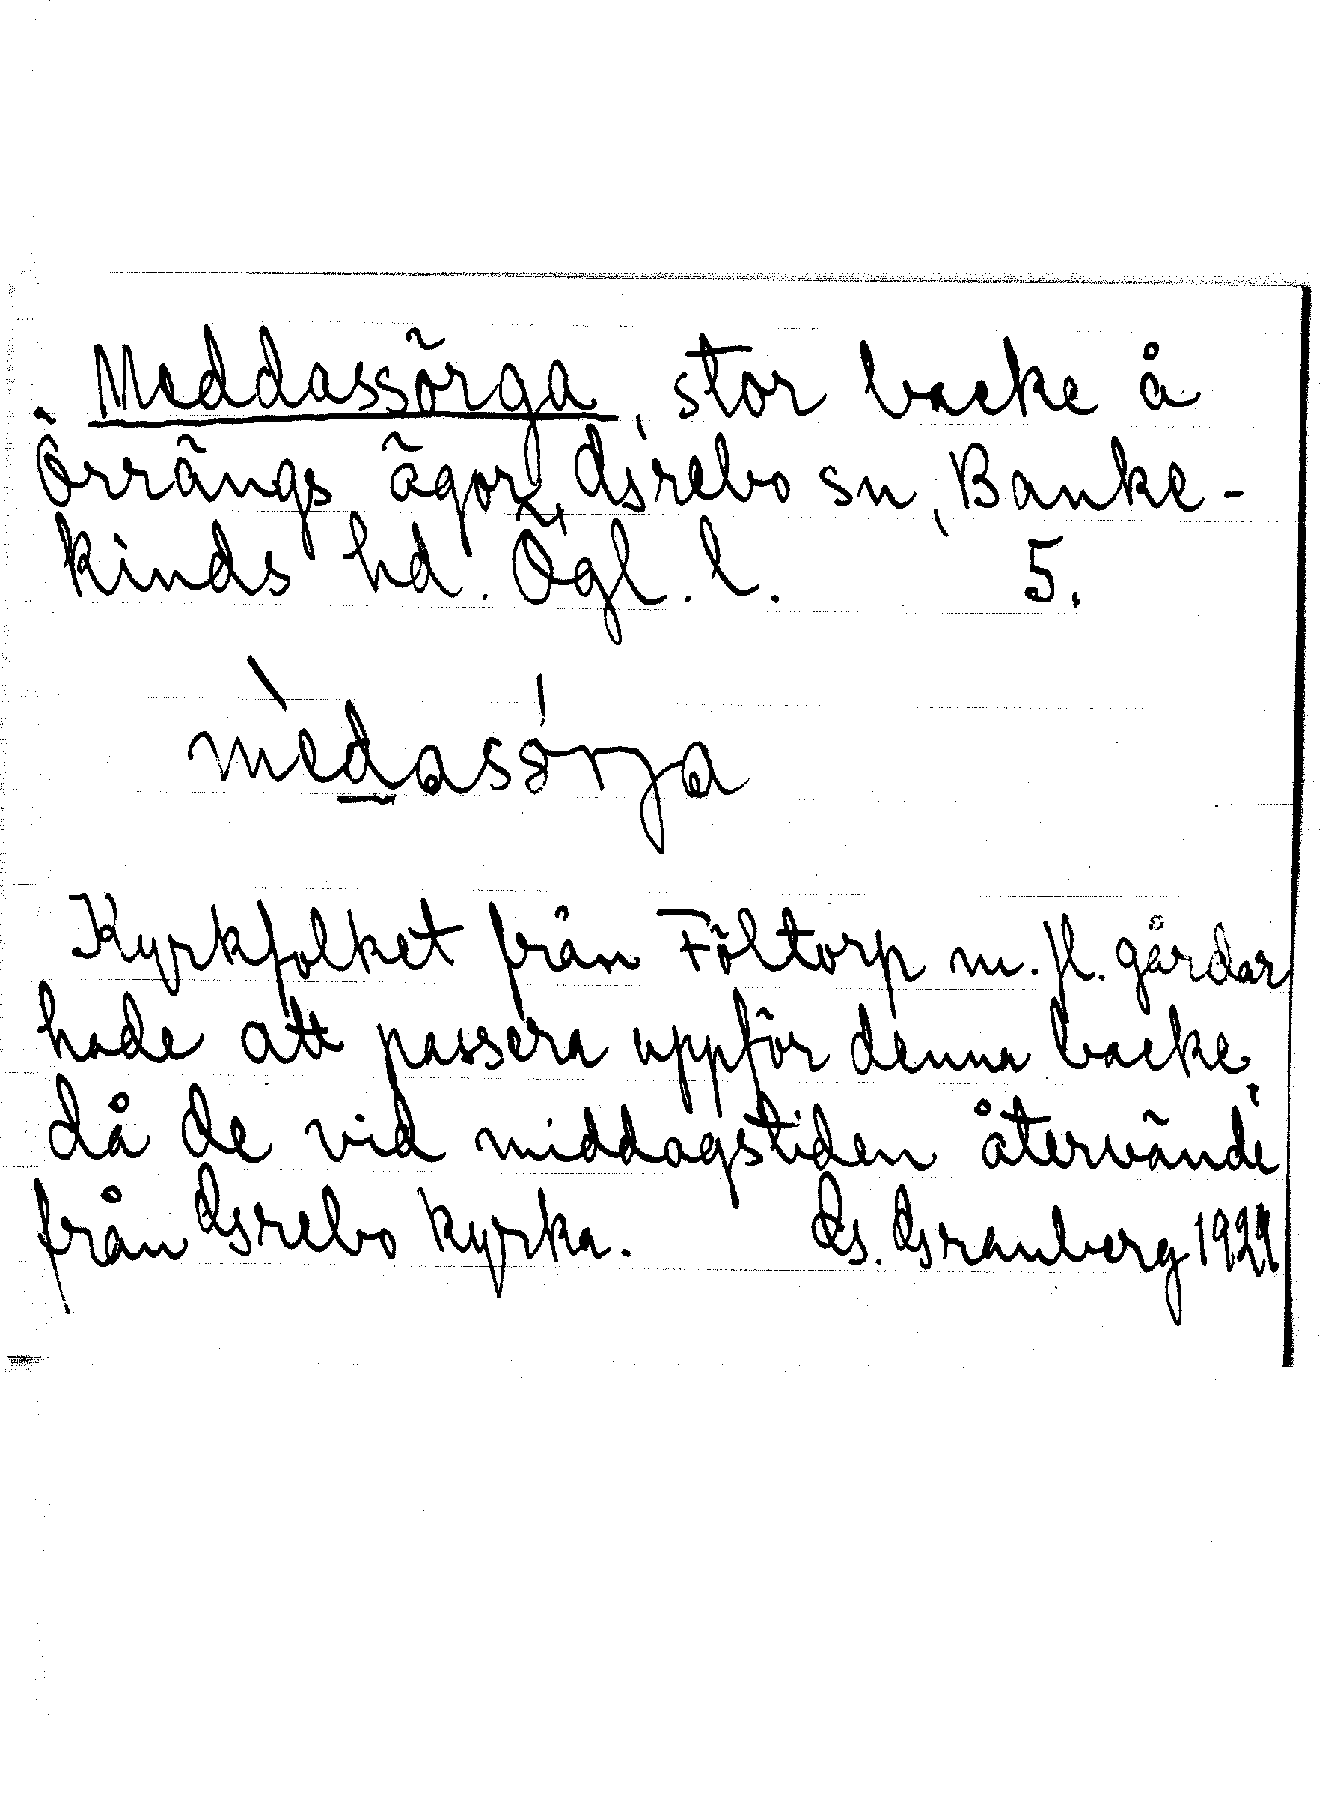 Meddassörga, stor backe å
Örrängs ägor, Grebo sn, Banke-
kinds hd. Ögl. l. 5.
mèdasórja
Kyrkfolket från Föltorp m. fl. gårdar
hade att passera uppför denna backe,
då de vid middagstiden återvände
från Grebo kyrka. G. Granberg 1929